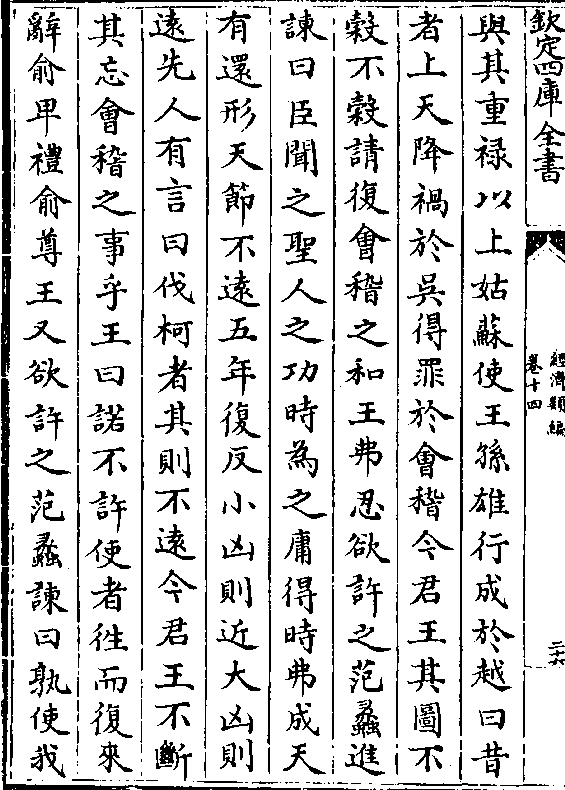 欽定四庫全書
經濟類編
卷十四
二十六
與其重禄以上姑蘇使王孫雄行成於越曰昔
者上天降禍於吳得罪於會稽今君王其圖不
穀不穀請復會稽之和王弗忍欲許之范蠡進
諫曰臣聞之聖人之功時為之庸得時弗成天
有還形天節不遠五年復反小凶則近大凶則
遠先人有言曰伐柯者其則不遠今君王不斷
其忘會稽之事乎王曰諾不許使者徃而復來
辭俞卑禮俞尊王又欲許之范蠡諫曰孰使我